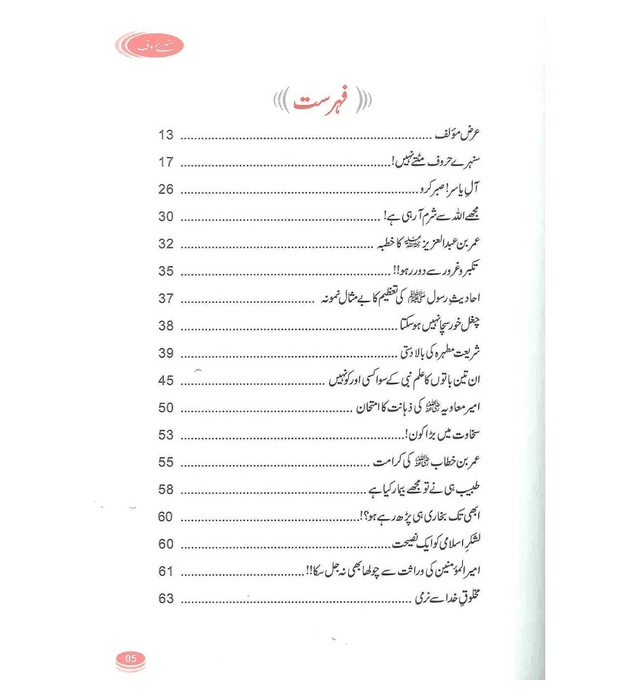 سنہرے حروف
فہرست
عرض مؤلف ........ 13
سنہرے حروف مٹتے نہیں! ........ 17
آلِ یاسر! صبر کرو ........ 26
مجھے اللہ سے شرم آرہی ہے! ........ 30
عمر بن عبدالعزیز کا خطبہ ........ 32
تکبر وغرور سے دور رہو!! ........ 35
احادیثِ رسول ﷺ کی تعظیم کا بے مثال نمونہ ........ 37
چغل خور سچا نہیں ہوسکتا ........ 38
شریعت مطہرہ کی بالادستی ........ 39
ان تین باتوں کا علم نبی کے سوا کسی اور کو نہیں ........ 45
امیر معاویہ کی ذہانت کا امتحان ........ 50
سخاوت میں بڑا کون! ........ 53
عمر بن خطاب کی کرامت ........ 55
طبیب ہی نے تو مجھے بیمار کیا ہے ........ 58
ابھی تک بخاری ہی پڑھ رہے ہو؟! ........ 60
لشکرِ اسلامی کو ایک نصیحت ........ 60
امیرالمؤمنین کی وراثت سے چولھا بھی نہ جل سکا!! ........ 61
مخلوقِ خدا سے نرمی ........ 63
05